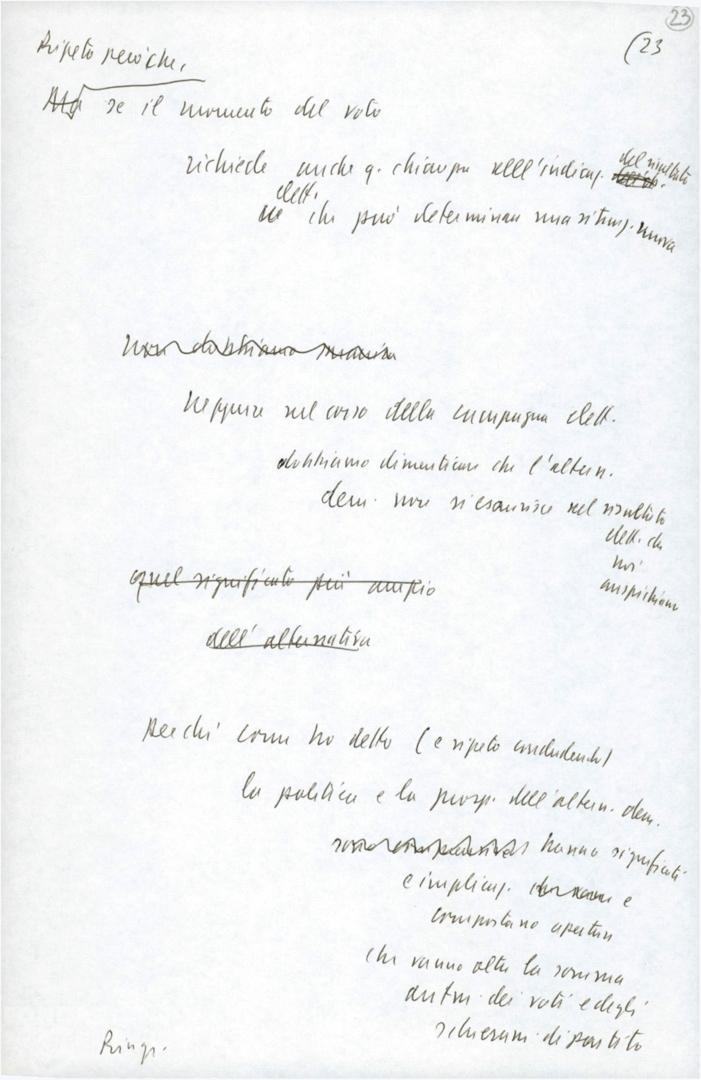 23
(23
Ripeto però che,
Ma se il momento del voto
richiede anche q. chiarezza nell'indicaz. del risultato
elett. che può determinare una situaz. nuova
non dobbiamo
neppure nel corso della campagna elett.
dobbiamo dimenticare che l'altern.
dem. non si esaurisce nel risultato
elett. che
noi
auspichiamo
quel significato più ampio
dell'alternativa
perché come ho detto (e ripeto concludendo)
la politica e la prosp. dell'altern. dem.
hanno significati
e implicaz. e
comportano aperture
che vanno oltre la somma
aritm. dei voti e degli
schieram. di partito
Ringr.